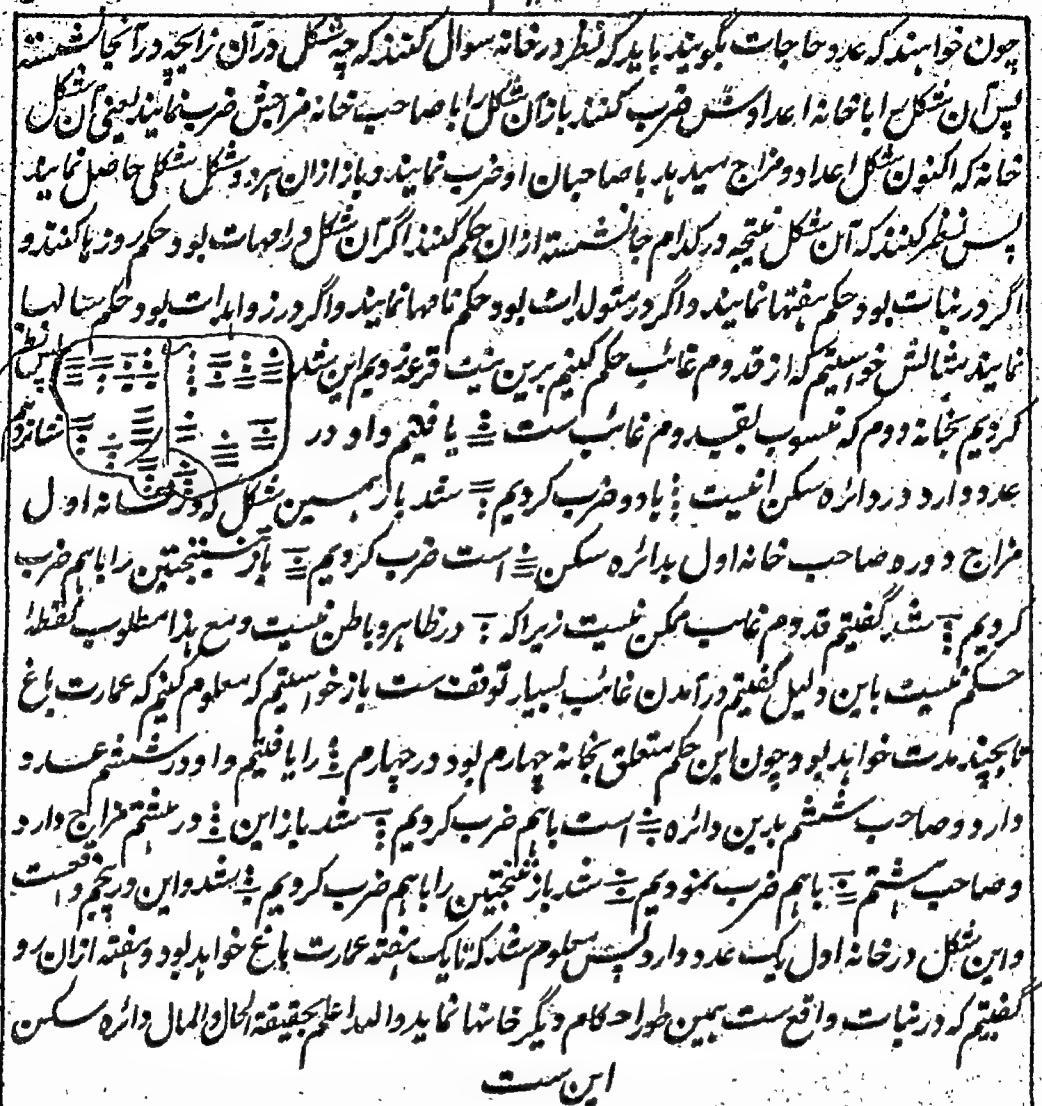 چون خواهند که عدد حاجات بگویند باید که نظر در خانه سوال کنند که چه شکل در آن زایچه در آنجا نشسته
پس آن شکل را با خانه اعداد ش ضرب کنند باز آن شکل را با صاحب خانه مزاجش ضرب نمایند یعنی آن شکل
خانه که اکنون شکل اعداد و مزاج میدارد با صاحبان او ضرب نمایند و باز ازان هر دو شکل شکلی حاصل نمایند
پس نظر کنند که آن شکل نتیجه در کدام جا نشسته ازان حکم کنند اگر آن شکل در امهات بود حکم روزها کنند و
اگر در بنات بود حکم هفتها نمایند و اگر در متولدات بود حکم ماهها نمایند و اگر در زوایدات بود حکم سالها
نمایند مثالش خواستیم که از قدوم غائب حکم کنیم برین نیت قرعه زدیم این شد پس نظر
کردیم بخانه دوم که منسوب بقدوم غائب ست یافتیم و او در شانزدهم
عدد دارد در دائره سکن انیست با دو ضرب کردیم شد باز همین شکل که در خانه اول
مزاج دوره صاحب خانه اول بدائره سکن است ضرب کردیم باز نتیجتین را باهم ضرب
کردیم شد گفتیم قدوم غائب ممکن نیست زیرا که در ظاهر و باطن نیست و مع هذا مطلوب نقطهٔ
حکم نیست باین دلیل گفتیم در آمدن غائب بسیار توقف ست باز خواستیم که معلوم کنیم که عمارت باغ
تا بچند مدت خواهد بود چون این حکم متعلق بخانه چهارم بود در چهارم را یافتیم و او در ششم عدد و
دارد و صاحب ششم بدین دائره است باهم ضرب کردیم شد باز این در هشتم مزاج دارد
و صاحب هشتم باهم ضرب نمودیم شد باز نتیجتین را باهم ضرب کردیم شد و این در پنجم واقعست
و این شکل در خانه اول یک عدد دارد پس معلوم شد که تا یک هفته عمارت باغ خواهد بود و هفته ازان رو
گفتیم که در بنات واقع ست همین طور احکام دیگر خانها نماید والله اعلم بحقیقة الحال والمال دائره سکن
این ست